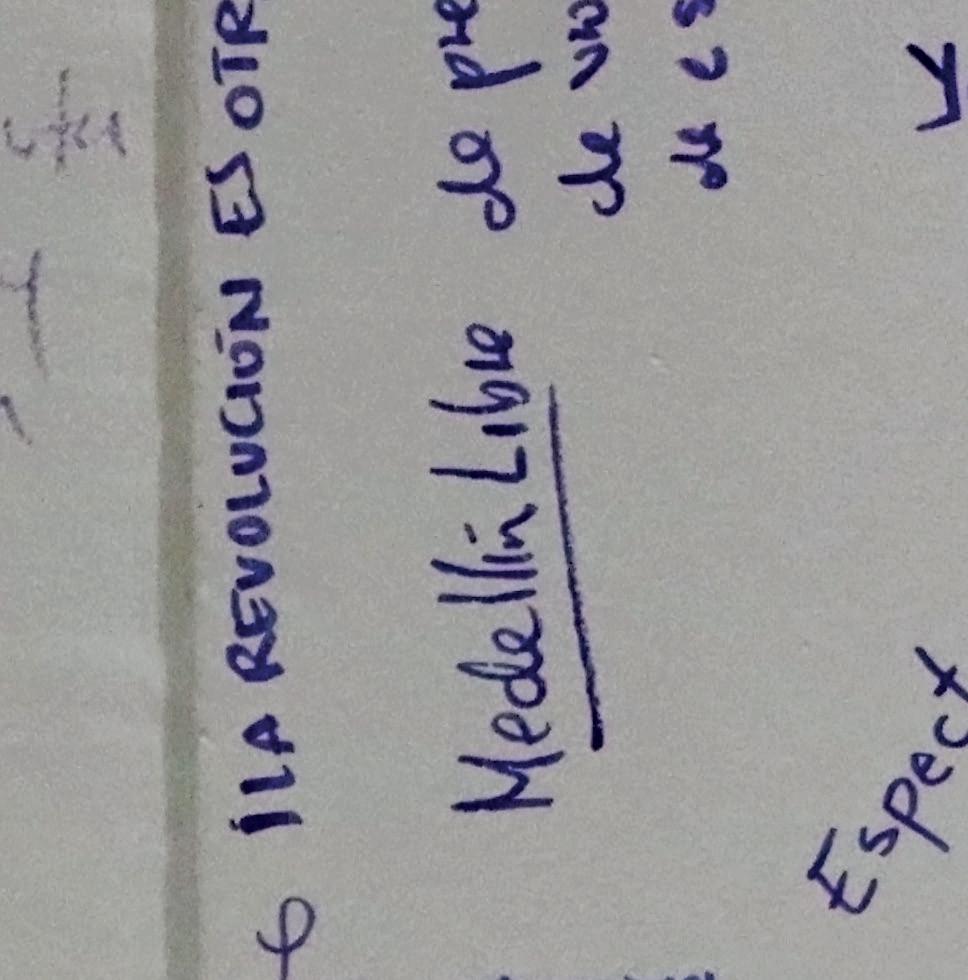 ¡LA REVOLUCIÓN ES OTR
Medellín Libre de pre
de un
de
Espect